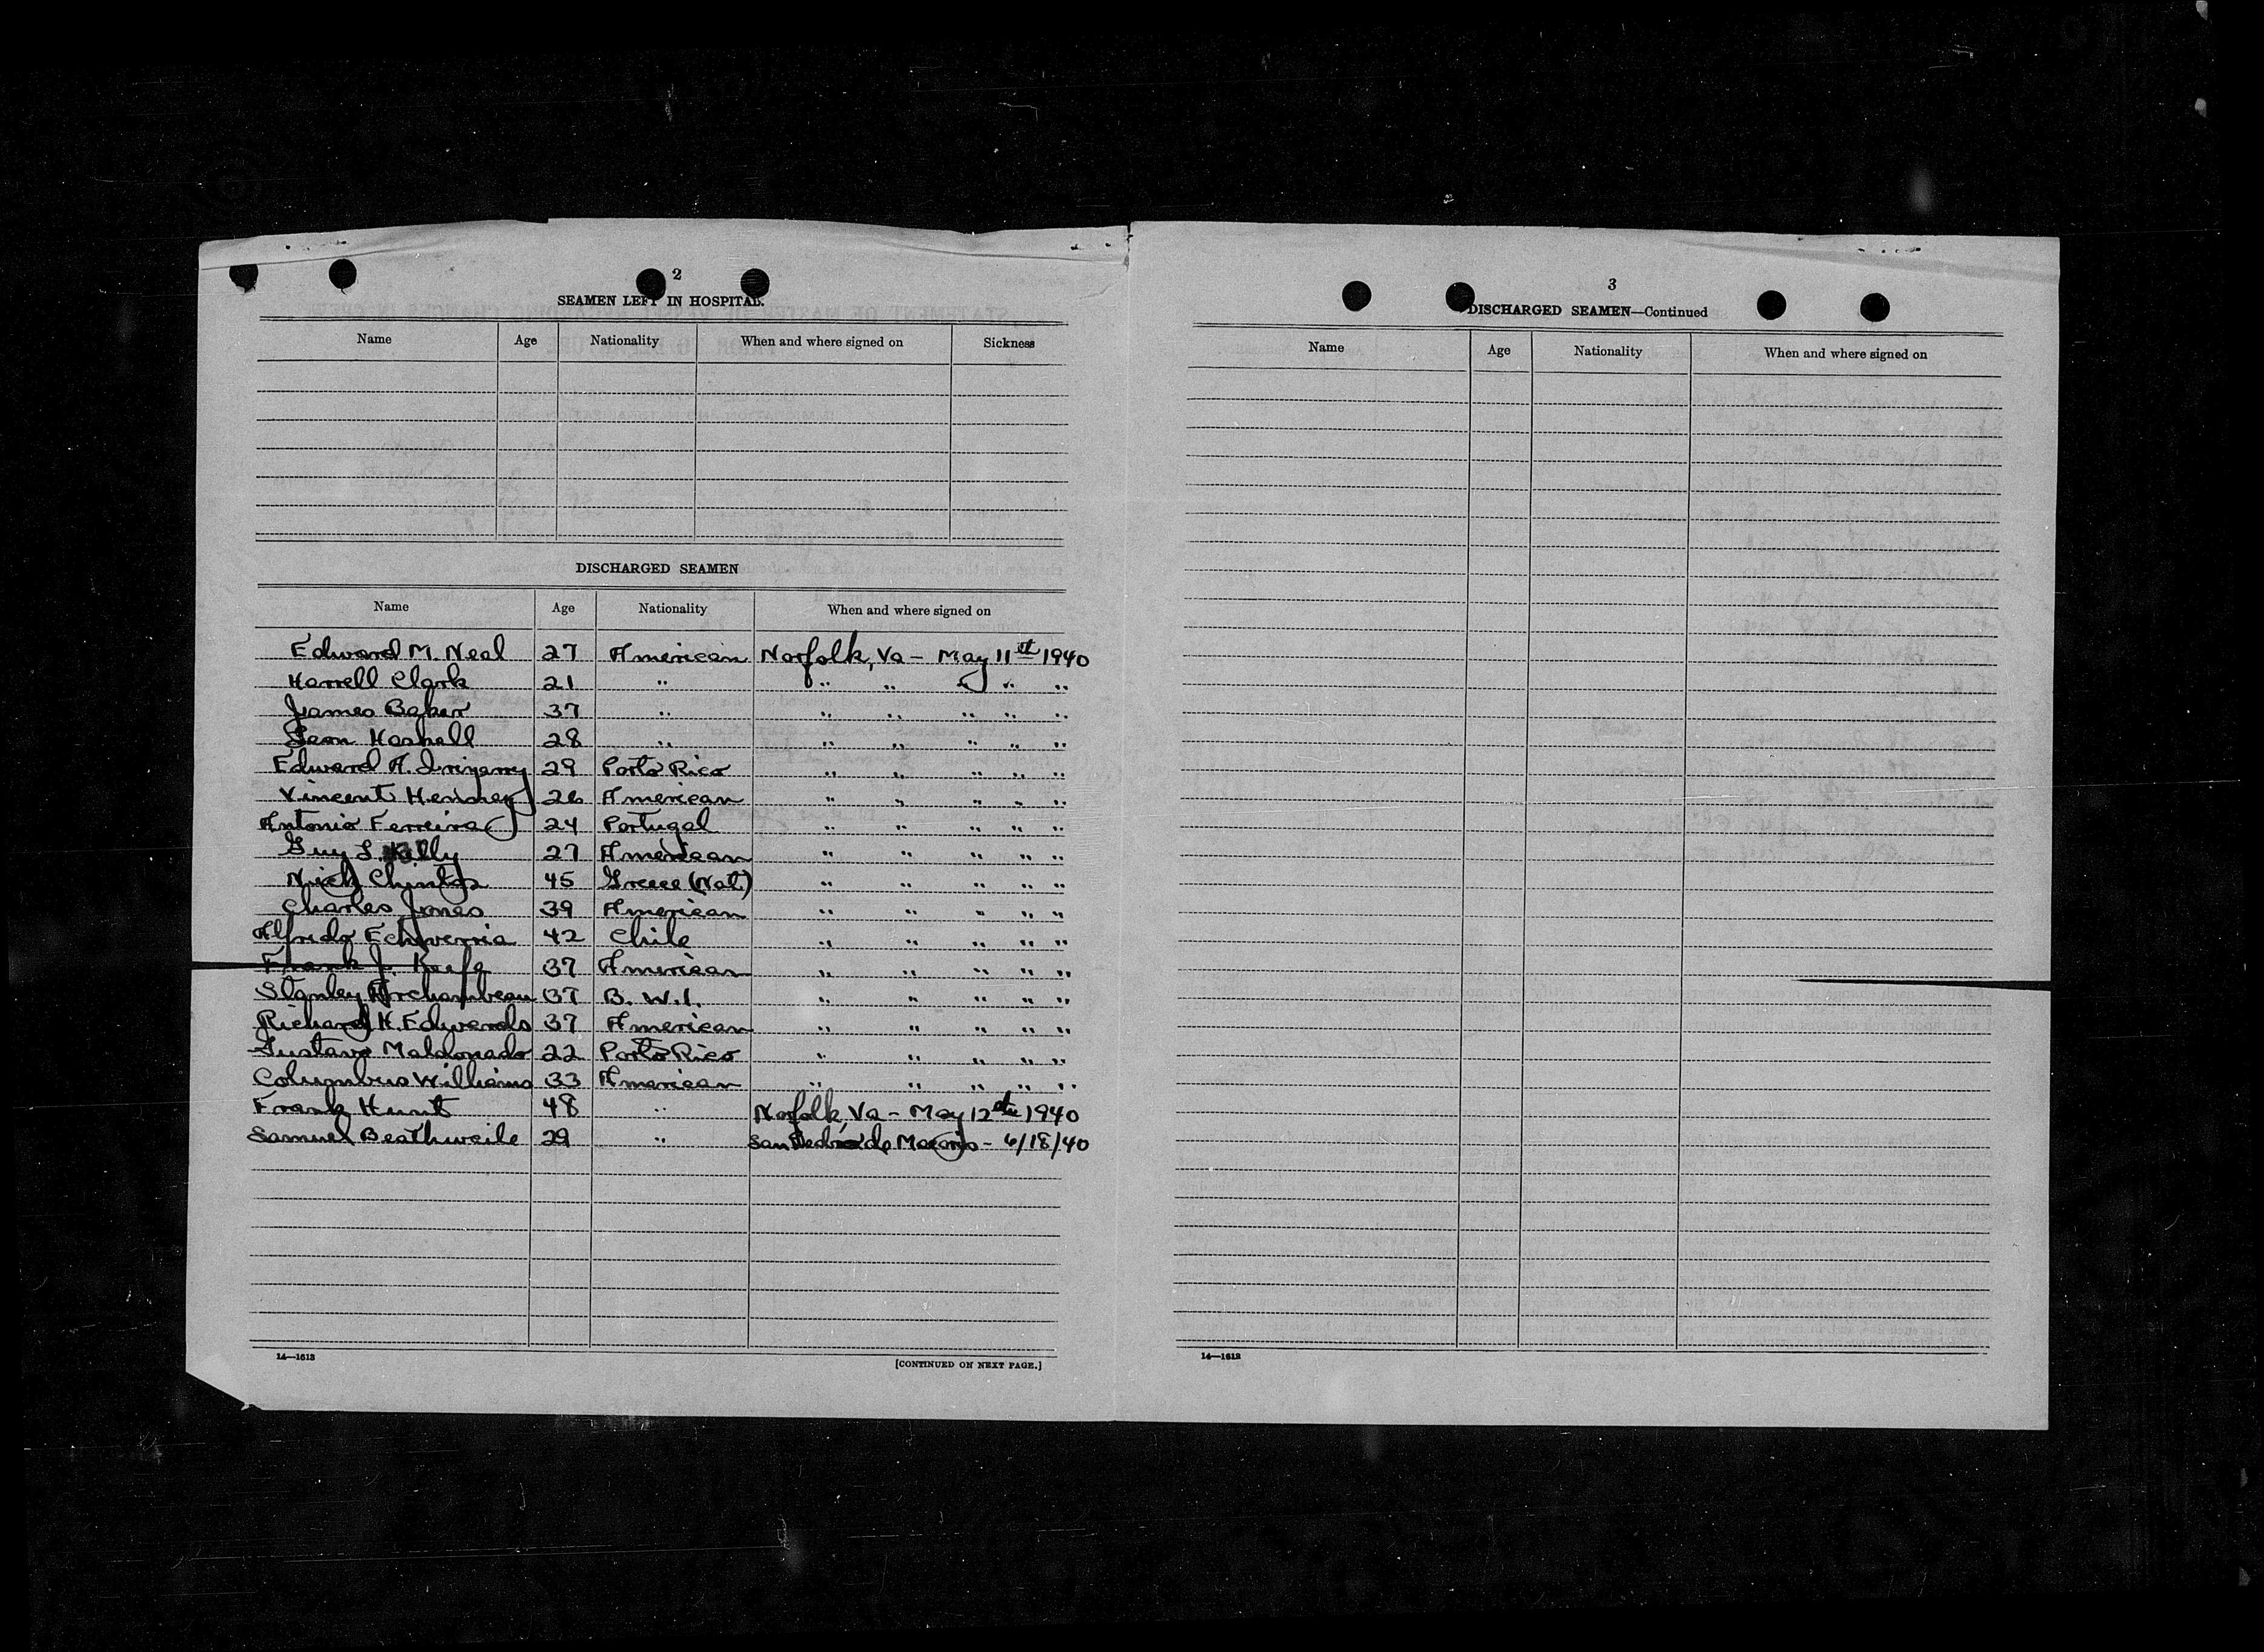 2
SEAMEN LEFT IN HOSPITAL.
Name Age Nationality When and where signed on Sickness
DISCHARGED SEAMEN
Name Age Nationality When and where signed on
Edward M. Neal 27 American Norfolk, Va - May 11th 1940
Harrell Clark 21 " " " " " "
James Baker 37 " " " " " "
Leon Haskell 28 " " " " " "
Edward A. Irizarry 29 Porto Rico " " " " "
Vincent Henney 26 American " " " " "
Antonio Ferreira 24 Portugal " " " " "
Guy L. Kelly 27 American " " " " "
Nick Chintos 45 Greece (Nat.) " " " " "
Charles Jones 39 American " " " " "
Alfredo Echiverria 42 Chile " " " " "
Frank J. Keefe 37 American " " " " "
Stanley Archambeau 37 B. W. I. " " " " "
Richard H. Edwards 37 American " " " " "
Gustavo Maldonado 22 Porto Rico " " " " "
Columbus Williams 33 American " " " " "
Frank Hunt 48 " Norfolk, Va - May 12th 1940
Samuel Beathweile 29 " San Pedro de Macoris - 6/18/40
14—1613
[CONTINUED ON NEXT PAGE.]
3
DISCHARGED SEAMEN—Continued
Name Age Nationality When and where signed on
14—1613